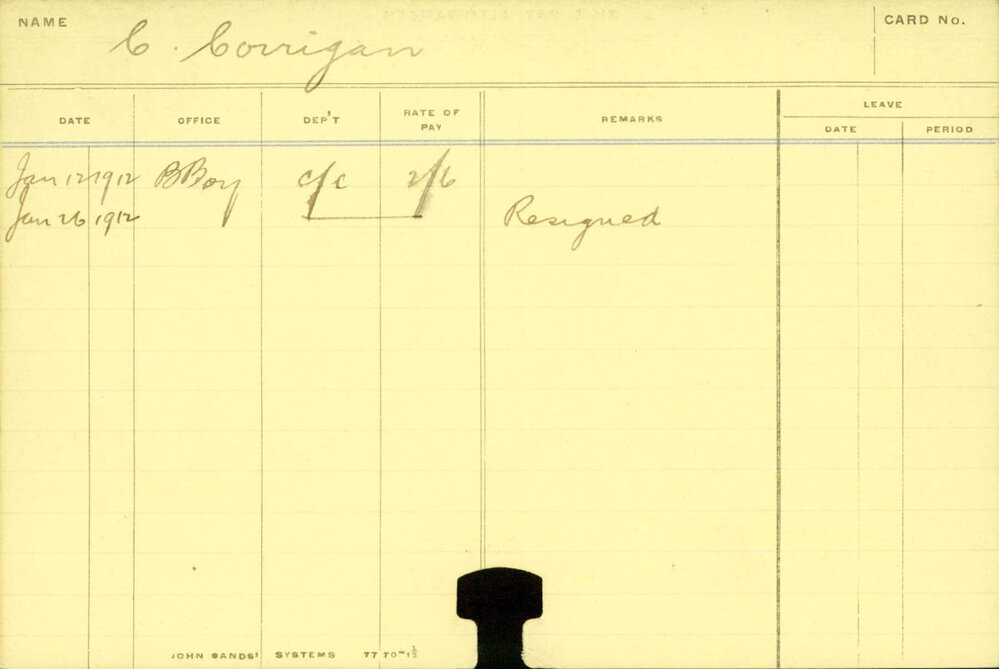 NAME C. Corrigan CARD No.
DATE OFFICE DEP'T RATE OF PAY REMARKS LEAVE
DATE PERIOD
Jan 12 1912 BBoy c/c 2/6
Jan 26 1912 Resigned
JOHN SANDS' SYSTEMS 77 70